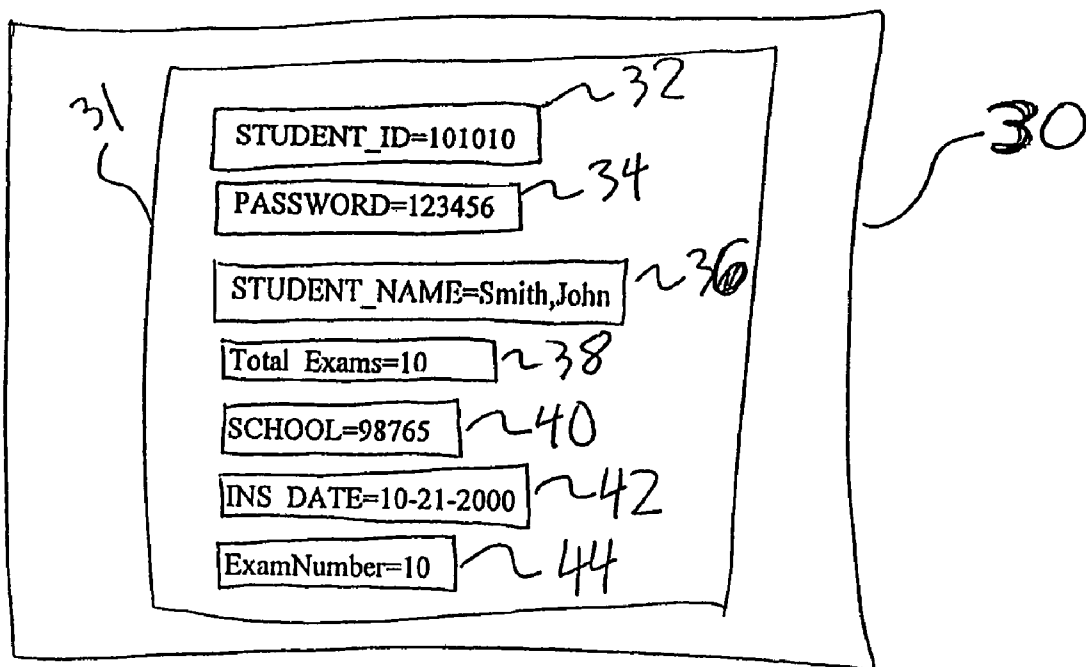 31
STUDENT_ID=101010 32
30
PASSWORD=123456 34
STUDENT_NAME=Smith,John 36
Total Exams=10 38
SCHOOL=98765 40
INS DATE=10-21-2000 42
ExamNumber=10 44